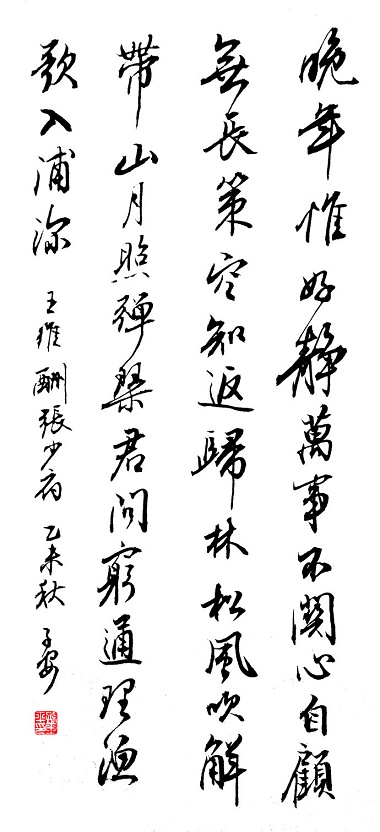 晚年惟好靜萬事不關心自顧
無長策空知返歸林松風吹解
帶山月照彈琴君問窮通理漁
歌入浦深 王維酬張少府 乙未秋